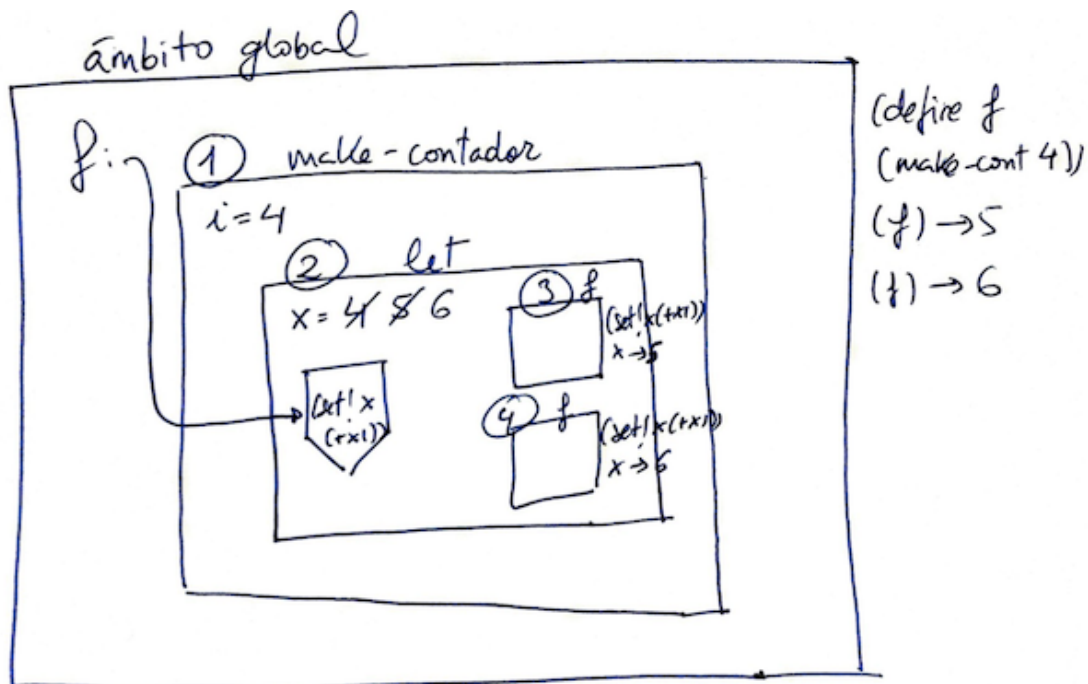 ámbito global
f:
1 make-contador
i = 4
2 let
x = 4 5 6
(set! x
(+x1))
3 f
(set! x (+x1))
x → 5
4 f
(set! x (+x1))
x → 6
(define f
(make-cont 4))
(f) → 5
(f) → 6